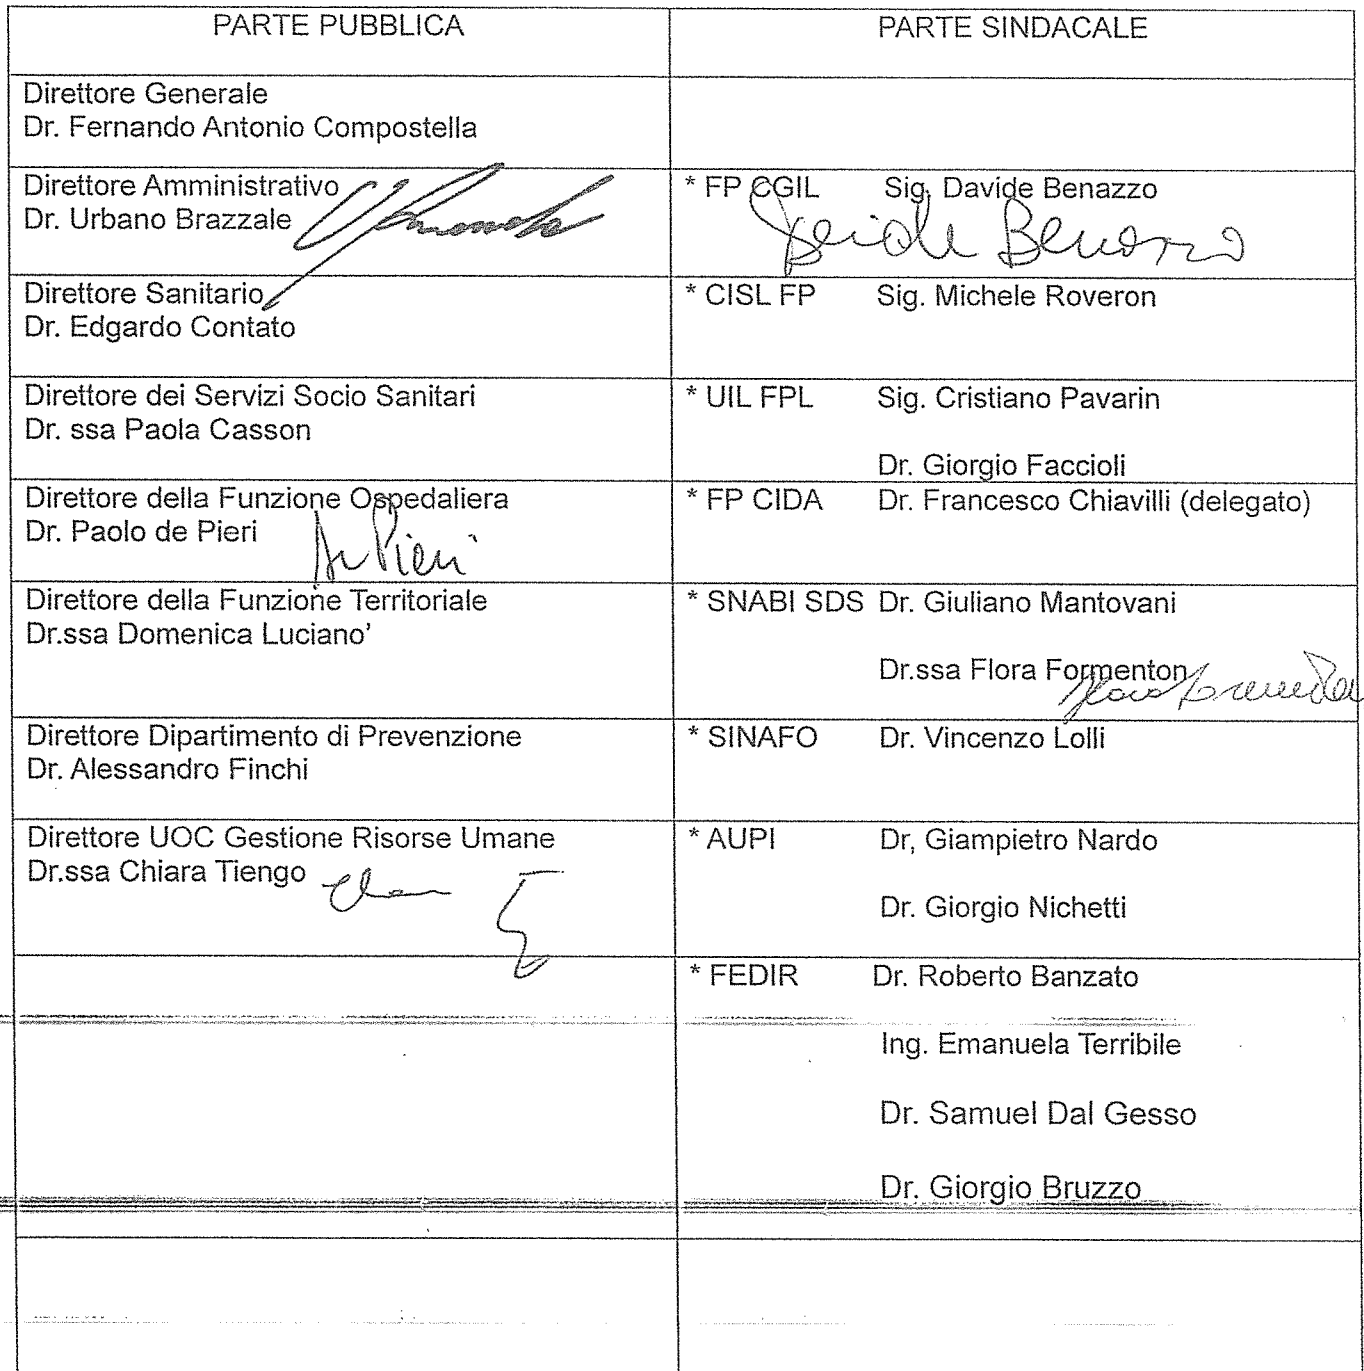 PARTE PUBBLICA
PARTE SINDACALE
Direttore Generale
Dr. Fernando Antonio Compostella
Direttore Amministrativo
Dr. Urbano Brazzale
* FP CGIL Sig. Davide Benazzo
Davide Benazzo
Direttore Sanitario
Dr. Edgardo Contato
* CISL FP Sig. Michele Roveron
Direttore dei Servizi Socio Sanitari
Dr. ssa Paola Casson
* UIL FPL Sig. Cristiano Pavarin
Dr. Giorgio Faccioli
Direttore della Funzione Ospedaliera
Dr. Paolo de Pieri
Pieri
* FP CIDA Dr. Francesco Chiavilli (delegato)
Direttore della Funzione Territoriale
Dr.ssa Domenica Luciano’
* SNABI SDS Dr. Giuliano Mantovani
Dr.ssa Flora Formenton
Direttore Dipartimento di Prevenzione
Dr. Alessandro Finchi
* SINAFO Dr. Vincenzo Lolli
Direttore UOC Gestione Risorse Umane
Dr.ssa Chiara Tiengo
* AUPI Dr, Giampietro Nardo
Dr. Giorgio Nichetti
* FEDIR Dr. Roberto Banzato
Ing. Emanuela Terribile
Dr. Samuel Dal Gesso
Dr. Giorgio Bruzzo